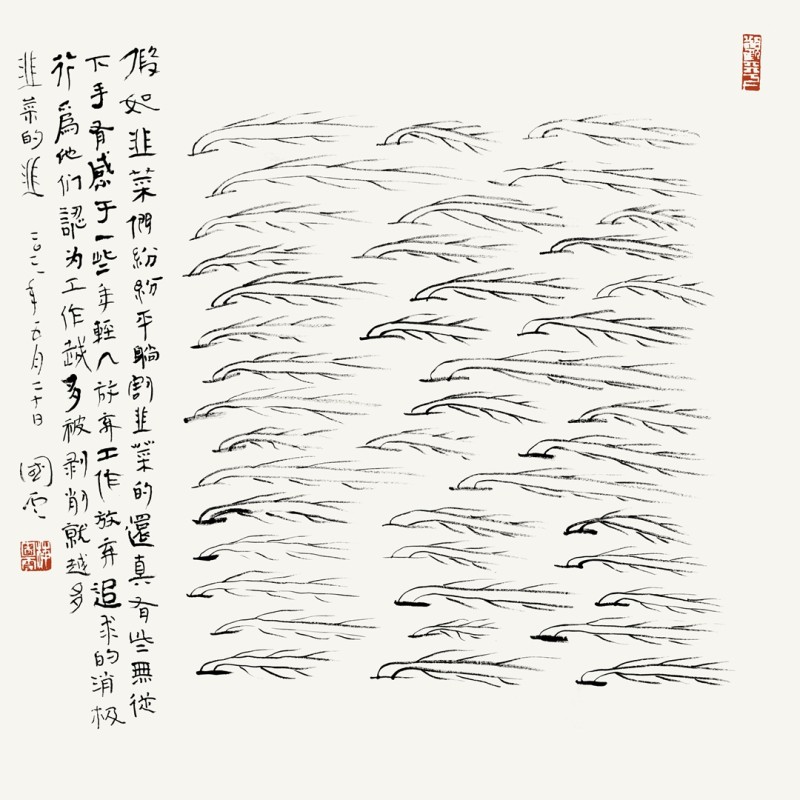 假如韭菜們紛紛平躺割韭菜的還真有些無從
下手有感于一些年輕人放弃工作放弃追求的消极
行爲他们認为工作越多被剥削就越多
韭菜的韭 二〇二一年五月二十日 國雲